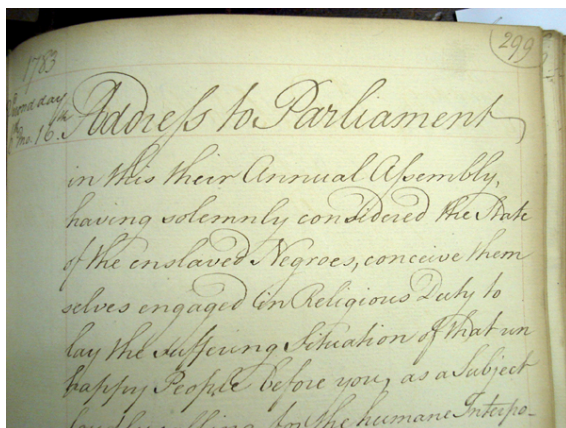 299
1783
Second day
6th mo. 16th
Address to Parliament
in this their Annual Assembly,
having solemnly considered the State
of the enslaved Negroes, conceive them
selves engaged in Religious Duty to
lay the suffering Situation of that un
happy People before you, as a Subject
loudly calling for the humane Interpo-